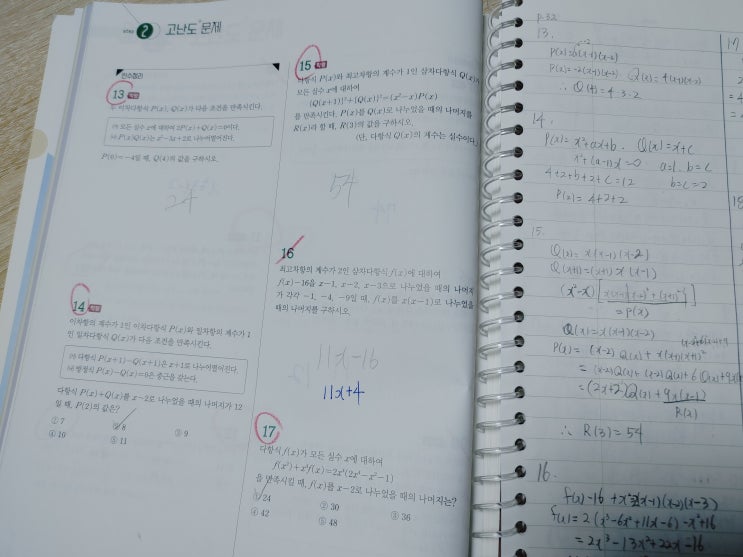 step 2 고난도 문제
인수정리
13
두 이차다항식 P(x), Q(x)가 다음 조건을 만족시킨다.
㈎ 모든 실수 x에 대하여 2P(x)+Q(x)=0이다.
㈏ P(x)Q(x)는 x²-3x+2로 나누어떨어진다.
P(0)=-4일 때, Q(4)의 값을 구하시오.
24
14
이차항의 계수가 1인 이차다항식 P(x)와 일차항의 계수가 1
인 일차다항식 Q(x)가 다음 조건을 만족시킨다.
㈎ 다항식 P(x+1)-Q(x+1)은 x+1로 나누어떨어진다.
㈏ 방정식 P(x)-Q(x)=0은 중근을 갖는다.
다항식 P(x)+Q(x)를 x-2로 나누었을 때의 나머지가 12
일 때, P(2)의 값은?
①7 ②8 ③9
④10 ⑤11
15
다항식 P(x)와 최고차항의 계수가 1인 삼차다항식 Q(x)가
모든 실수 x에 대하여
{Q(x+1)}²+{Q(x)}²=(x²-x)P(x)
를 만족시킨다. P(x)를 Q(x)로 나누었을 때의 나머지를
R(x)라 할 때, R(3)의 값을 구하시오.
(단, 다항식 Q(x)의 계수는 실수이다.)
54
16
최고차항의 계수가 2인 삼차다항식 f(x)에 대하여
f(x)-16을 x-1, x-2, x-3으로 나누었을 때의 나머지
가 각각 -1, -4, -9일 때, f(x)를 x(x-1)로 나누었을
때의 나머지를 구하시오.
11x-16
11x+4
17
다항식 f(x)가 모든 실수 x에 대하여
f(x²)+x²f(x)=2x²(2x⁴-x²-1)
을 만족시킬 때, f(x)를 x-2로 나누었을 때의 나머지는?
①24 ②30 ③36
④42 ⑤48
p.32
13.
P(x)=-2(x-1)(x-2) Q(x)=4(x-1)(x-2)
∴ Q(4)=4·3·2
14.
P(x)=x²+ax+b. Q(x)=x+c
x²+(a-1)x=0 a=1. b=c
4+2+b+2+c=12 b=c=2
P(2)=4+2+2
15.
Q(x)=x(x-1)(x-2)
Q(x+1)=(x+1)x(x-1)
=P(x)
Q(x)=x(x-1)(x-2)
=(2x+2)Q(x)+9x(x-1)
R(x)
∴ R(3)=54
16.
f(x)-16+x²=2(x-1)(x-2)(x-3)
f(x)=2(x³-6x²+11x-6)-x²+16
=2x³-13x²+22x-16
17